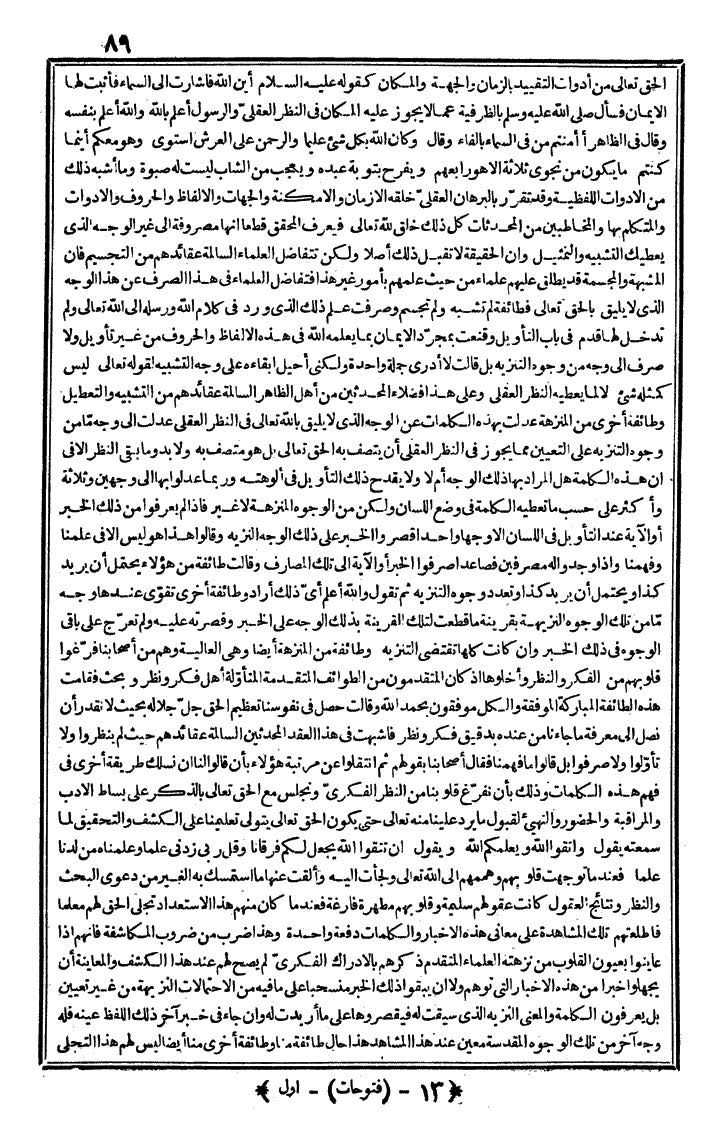 ٨٩
الحق تعالى من أدوات التقييد بالزمان والجهة والمكان كقوله عليه السلام أين الله فاشارت الى السماء فأثبت لها
الايمان فسأل صلى الله عليه وسلم بالظرفية عما لايجوز عليه المكان فى النظر العقلىّ والرسول أعلم بالله والله أعلم بنفسه
وقال فى الظاهر أأمنتم من فى السماء بالفاء وقال وكان الله بكل شئ عليما والرحمن على العرش استوى وهو معكم أينما
كنتم مايكون من نجوى ثلاثة الاهورابعهم ويفرح بتوبة عبده ويعجب من الشاب ليست له صبوة وماأشبه ذلك
من الادوات اللفظية وقد تقرّر بالبرهان العقلىّ خلقه الازمان والامكنة والجهات والالفاظ والحروف والادوات
والمتكلم بها والمخاطبين من المحدثات كل ذلك خلق لله تعالى فيعرف المحقق قطعا انها مصروفة الى غير الوجه الذى
يعطيك التشبيه والتمثيل وان الحقيقة لاتقبل ذلك أصلا ولكن تتفاضل العلماء السالمة عقائدهم من التجسيم فان
المشبهة والمجسمة قد يطلق عليهم علماء من حيث علمهم بأمور غير هذا فتفاضل العلماء فى هذا الصرف عن هذا الوجه
الذى لايليق بالحق تعالى فطائفة لم تشبه ولم تجسم وصرفت علم ذلك الذى ورد فى كلام الله ورسله الى الله تعالى ولم
تدخل لها قدم فى باب التأويل وقنعت بمجرّد الايمان بما يعلمه الله فى هذه الالفاظ والحروف من غير تأويل ولا
صرف الى وجه من وجوه التنزيه بل قالت لا أدرى جملة واحدة ولكنى أحيل ابقاءه على وجه التشبيه لقوله تعالى ليس
كمثله شئ لالما يعطيه النظر العقلى وعلى هذا فضلاء المحدثين من أهل الظاهر السالمة عقائدهم من التشبيه والتعطيل
وطائفة أخرى من المنزهة عدلت بهذه الكلمات عن الوجه الذى لايليق بالله تعالى فى النظر العقلى عدلت الى وجه مّا من
وجوه التنزيه على التعيين مما يجوز فى النظر العقلى أن يتصف به الحق تعالى بل هو متصف به ولابد وما بقى النظر الافى
ان هذه الكلمة هل المراد بها ذلك الوجه أم لا ولايقدح ذلك التأويل فى ألوهته وربما عدلوا بها الى وجهين وثلاثة
وأكثر على حسب ماتعطيه الكلمة فى وضع اللسان ولكن من الوجوه المنزهة لاغير فاذا لم يعرفوا من ذلك الخبر
أوالآية عند التأويل فى اللسان الاوجها واحدا قصروا الخبر على ذلك الوجه النزيه وقالوا هذا هو ليس الافى علمنا
وفهمنا واذا وجدواله مصرفين فصاعدا صرفوا الخبر أوالآية الى تلك المصارف وقالت طائفة من هؤلاء يحتمل أن يريد
كذا ويحتمل أن يريد كذا وتعدد وجوه التنزيه ثم تقول والله أعلم أىّ ذلك أراد وطائفة أخرى تقوّى عندها وجه
مّا من تلك الوجوه النزيهة بقرينة ماقطعت لتلك القرينة بذلك الوجه على الخبر وقصرته عليه ولم تعرّج على باقى
الوجوه فى ذلك الخبر وان كانت كلها تقتضى التنزيه وطائفة من المنزهة أيضا وهى العالية وهم من أصحابنا فرّغوا
قلوبهم من الفكر والنظر وأخلوها اذ كان المتقدمون من الطوائف المتقدمة المتأوّلة أهل فكر ونظر وبحث فقامت
هذه الطائفة المباركة الموفقة والكل موفقون بحمد الله وقالت حصل فى نفوسنا تعظيم الحق جلّ جلاله بحيث لانقدر أن
نصل الى معرفة ماجاءنا من عنده بدقيق فكر ونظر فاشبهت فى هذا العقد المحدثين السالمة عقائدهم حيث لم ينظروا ولا
تأوّلوا ولاصرفوا بل قالوا مافهمنا فقال أصحابنا بقولهم ثم انتقلوا عن مرتبة هؤلاء بأن قالوا لنا ان نسلك طريقة أخرى فى
فهم هذه الكلمات وذلك بأن نفرّغ قلوبنا من النظر الفكرىّ ونجلس مع الحق تعالى بالذكر على بساط الادب
والمراقبة والحضور والتهيئ لقبول ما يرد علينا منه تعالى حتى يكون الحق تعالى يتولى تعليمنا على الكشف والتحقيق لما
سمعته يقول واتقوا الله ويعلمكم الله ويقول ان تتقوا الله يجعل لكم فرقانا وقل ربى زدنى علما وعلمناه من لدنا
علما فعندما توجهت قلوبهم وهممهم الى الله تعالى ولجأت اليه وألقت عنها ما استمسك به الغير من دعوى البحث
والنظر ونتائج العقول كانت عقولهم سليمة وقلوبهم مطهرة فارغة فعندما كان منهم هذا الاستعداد تجلى الحق لهم معلما
فاطلعتهم تلك المشاهدة على معانى هذه الاخبار والكلمات دفعة واحدة وهذا ضرب من ضروب المكاشفة فانهم اذا
عاينوا بعيون القلوب من نزهته العلماء المتقدم ذكرهم بالادراك الفكرىّ لم يصح لهم عند هذا الكشف والمعاينة أن
يجهلوا خبرا من هذه الاخبار التى توهم ولاان يبقوا ذلك الخبر منسحبا على مافيه من الاحتمالات النزيهة من غير تعيين
بل يعرفون الكلمة والمعنى النزيه الذى سيقت له فيقصروها على ماأريدت له وان جاء فى خبر آخر ذلك اللفظ عينه فله
وجه آخر من تلك الوجوه المقدسة معين عند هذا المشاهد هذا حال طائفة منا وطائفة أخرى منا أيضا ليس لهم هذا التجلى
﴿ ١٣ - (فتوحات) - اول ﴾